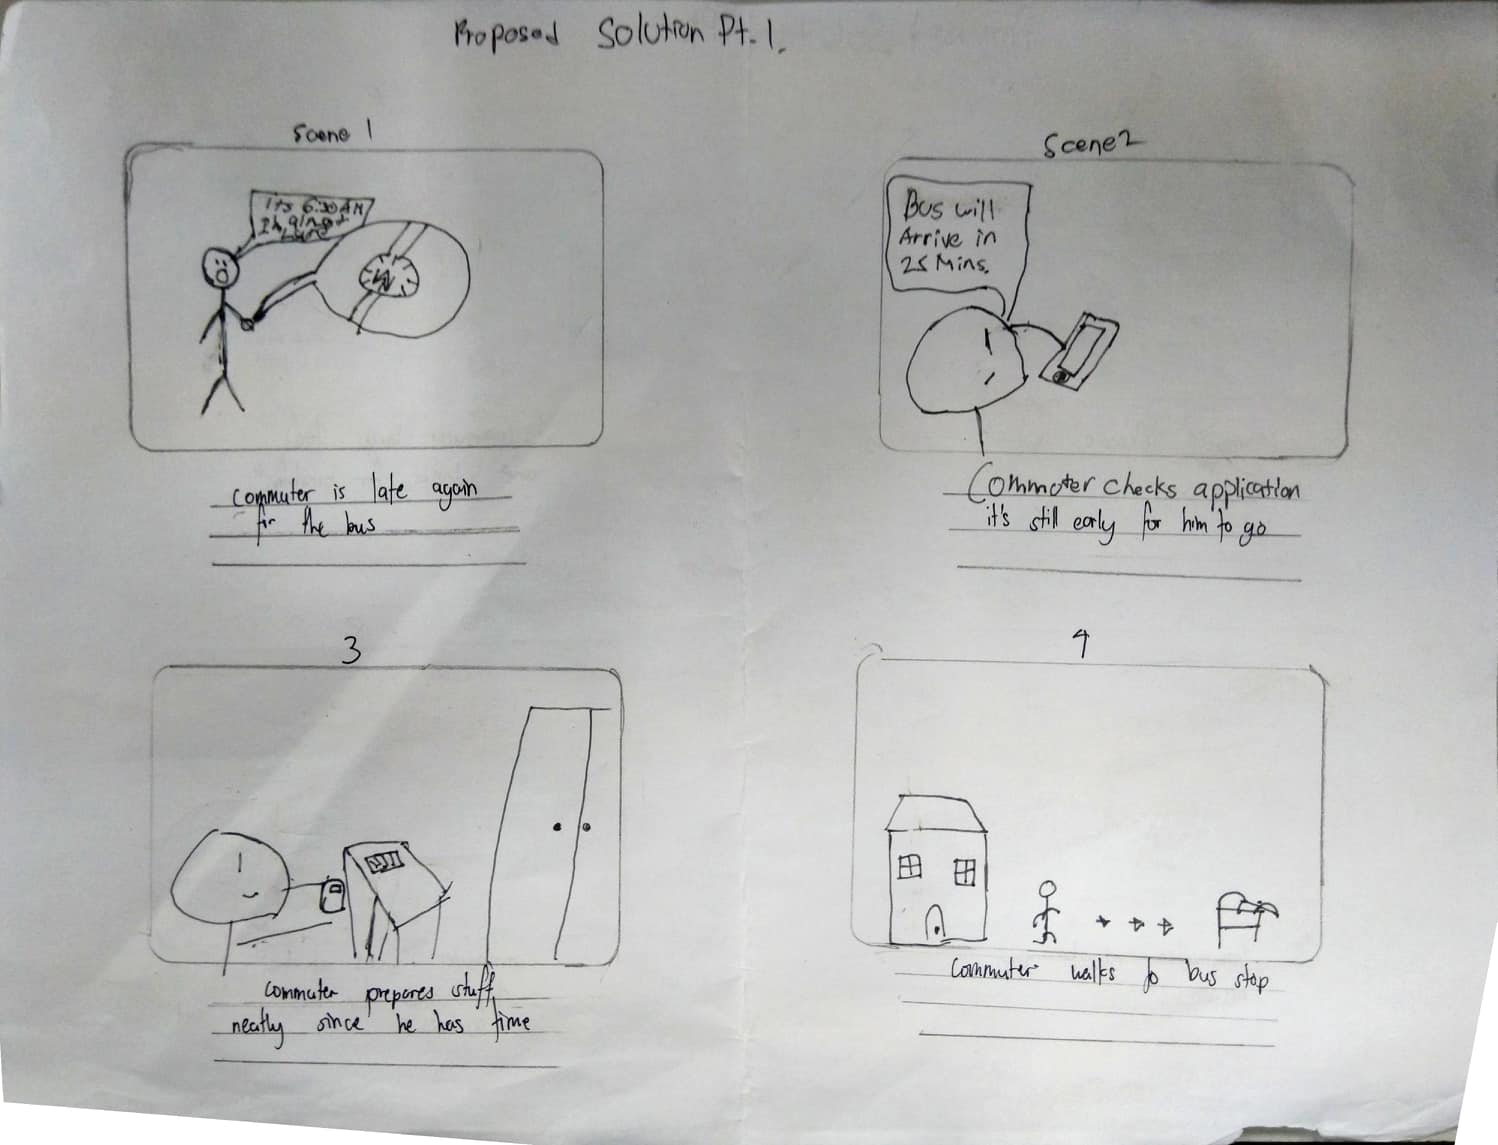 Proposed Solution Pt. 1.
Scene 1
It's 6:30 AM
late
Commuter is late again
for the bus
Scene 2
Bus will
Arrive in
25 Mins.
Commuter checks application
it's still early for him to go
3
Commuter prepares stuff
neatly since he has time
4
Commuter walks to bus stop